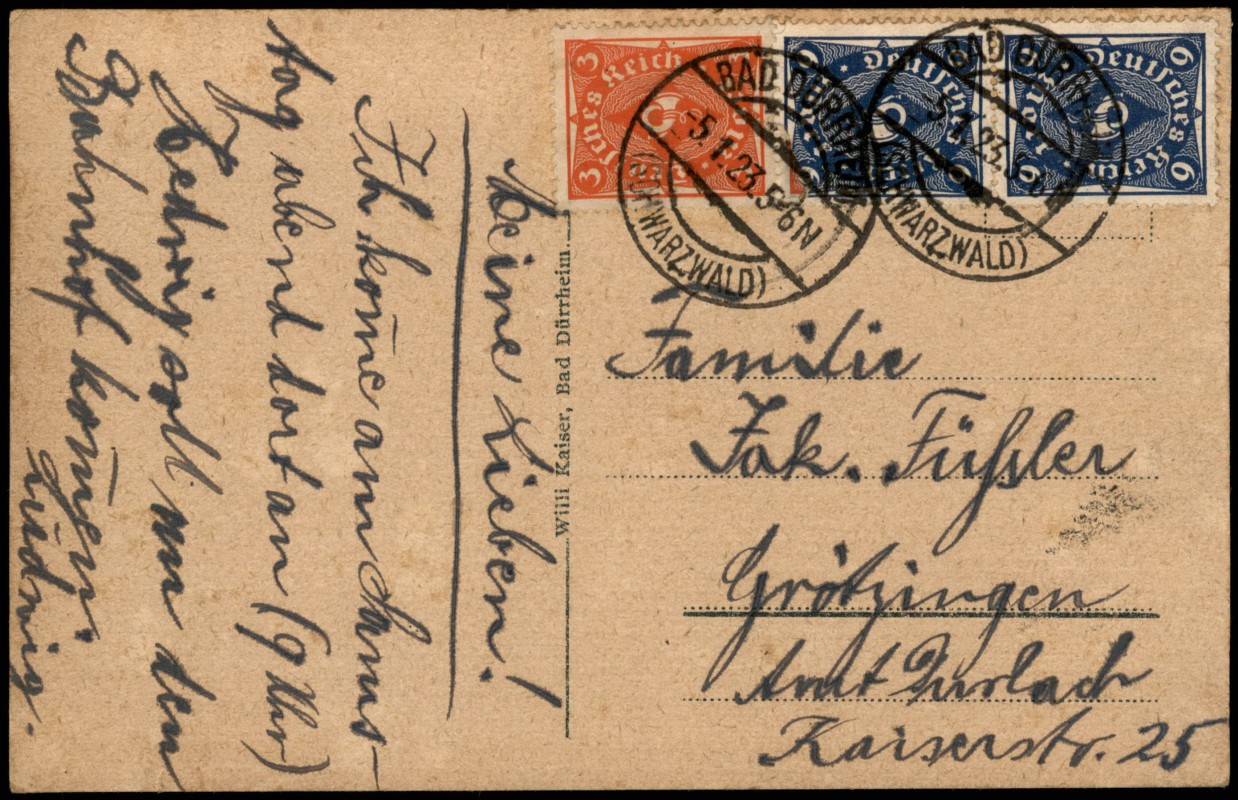 Meine Lieben!
Ich kom̄e am Sams-
tag abend dort an (9 Uhr)
Hedwig soll an den
Bahnhof kom̄en.
Ludwig.
Will Kaiser, Bad Dürrheim.
3 Deutsches Reich 3
6 Deutsches Reich 6
6 Deutsches Reich 6
BAD DÜRRHEIM
-5.1.23.5-6N
(SCHWARZWALD)
BAD DÜRRHEIM
-5.1.23.5-6N
(SCHWARZWALD)
Familie
Jak. Füßler
Grötzingen
Amt Durlach
Kaiserstr. 25